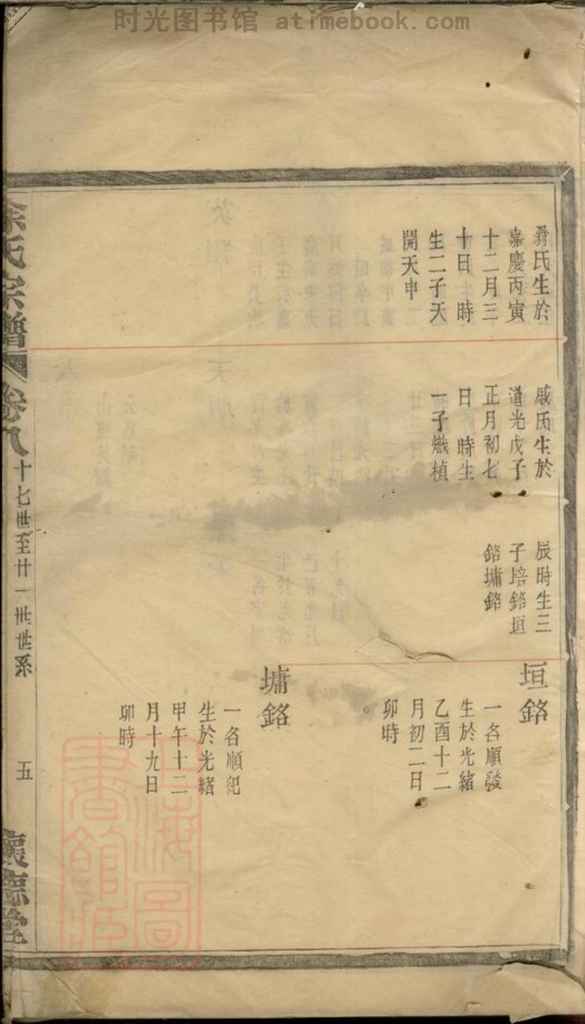 时光图书馆 atimebook.com
氏生於
嘉慶丙寅
十二月三
十日 時
生二子天
開天申
戚氏生於
道光戊子
正月初七
日 時生
一子熾植
辰時生三
子培鉻垣
鉻墉鉻
垣鉻
一名順發
生於光緒
乙酉十二
月初二日
卯時
墉鉻
一名順
生於光緒
甲午十二
月十九日
卯時
氏宗譜
卷八
十七世至廿一世世系
五
懷德堂
上海圖
書館